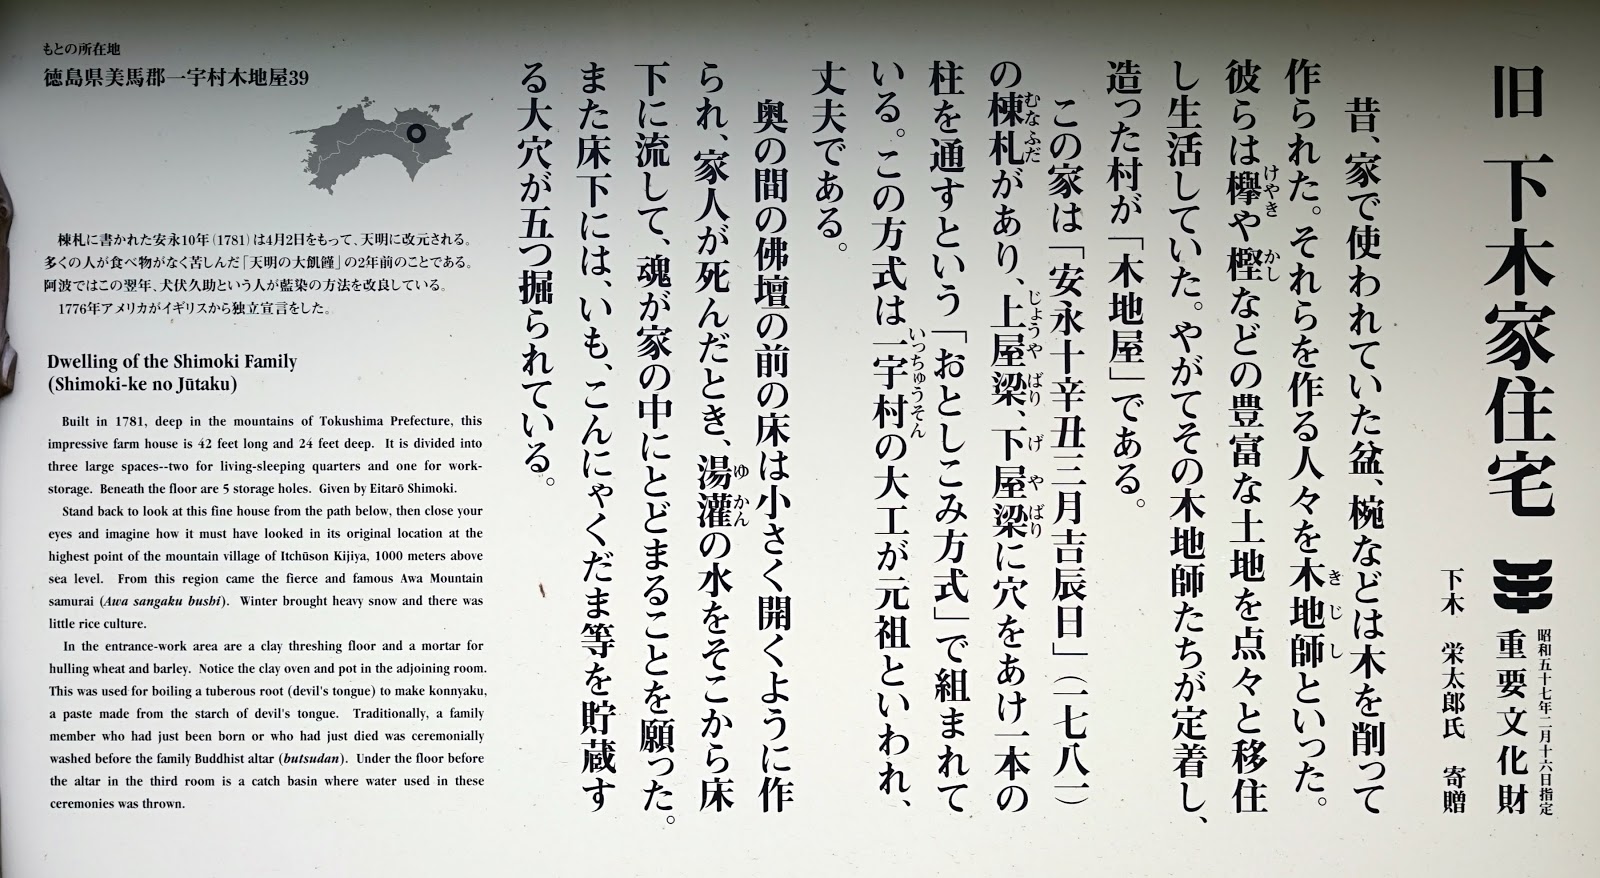 旧 下木家住宅
昭和五十七年二月十六日指定
重要文化財
下木 栄太郎氏 寄贈
昔、家で使われていた盆、椀などは木を削って
作られた。それらを作る人々を木地師といった。
きじし
彼らは欅や樫などの豊富な土地を点々と移住
けやき かし
し生活していた。やがてその木地師たちが定着し、
造った村が「木地屋」である。
この家は「安永十辛丑三月吉辰日」(一七八一)
の棟札があり、上屋梁、下屋梁に穴をあけ一本の
むなふだ じょうや ばり げ や ばり
柱を通すという「おとしこみ方式」で組まれて
いる。この方式は一宇村の大工が元祖といわれ、
いっちゅうそん
丈夫である。
奥の間の佛壇の前の床は小さく開くように作
られ、家人が死んだとき、湯灌の水をそこから床
ゆかん
下に流して、魂が家の中にとどまることを願った。
また床下には、いも、こんにゃくだま等を貯蔵す
る大穴が五つ掘られている。
もとの所在地
徳島県美馬郡一宇村木地屋39
棟札に書かれた安永10年(1781)は4月2日をもって、天明に改元される。
多くの人が食べ物がなく苦しんだ「天明の大飢饉」の2年前のことである。
阿波ではこの翌年、犬伏久助という人が藍染の方法を改良している。
1776年アメリカがイギリスから独立宣言をした。
Dwelling of the Shimoki Family
(Shimoki-ke no Jūtaku)
Built in 1781, deep in the mountains of Tokushima Prefecture, this
impressive farm house is 42 feet long and 24 feet deep. It is divided into
three large spaces--two for living-sleeping quarters and one for work-
storage. Beneath the floor are 5 storage holes. Given by Eitarō Shimoki.
Stand back to look at this fine house from the path below, then close your
eyes and imagine how it must have looked in its original location at the
highest point of the mountain village of Itchūson Kijiya, 1000 meters above
sea level. From this region came the fierce and famous Awa Mountain
samurai (Awa sangaku bushi). Winter brought heavy snow and there was
little rice culture.
In the entrance-work area are a clay threshing floor and a mortar for
hulling wheat and barley. Notice the clay oven and pot in the adjoining room.
This was used for boiling a tuberous root (devil's tongue) to make konnyaku,
a paste made from the starch of devil's tongue. Traditionally, a family
member who had just been born or who had just died was ceremonially
washed before the family Buddhist altar (butsudan). Under the floor before
the altar in the third room is a catch basin where water used in these
ceremonies was thrown.